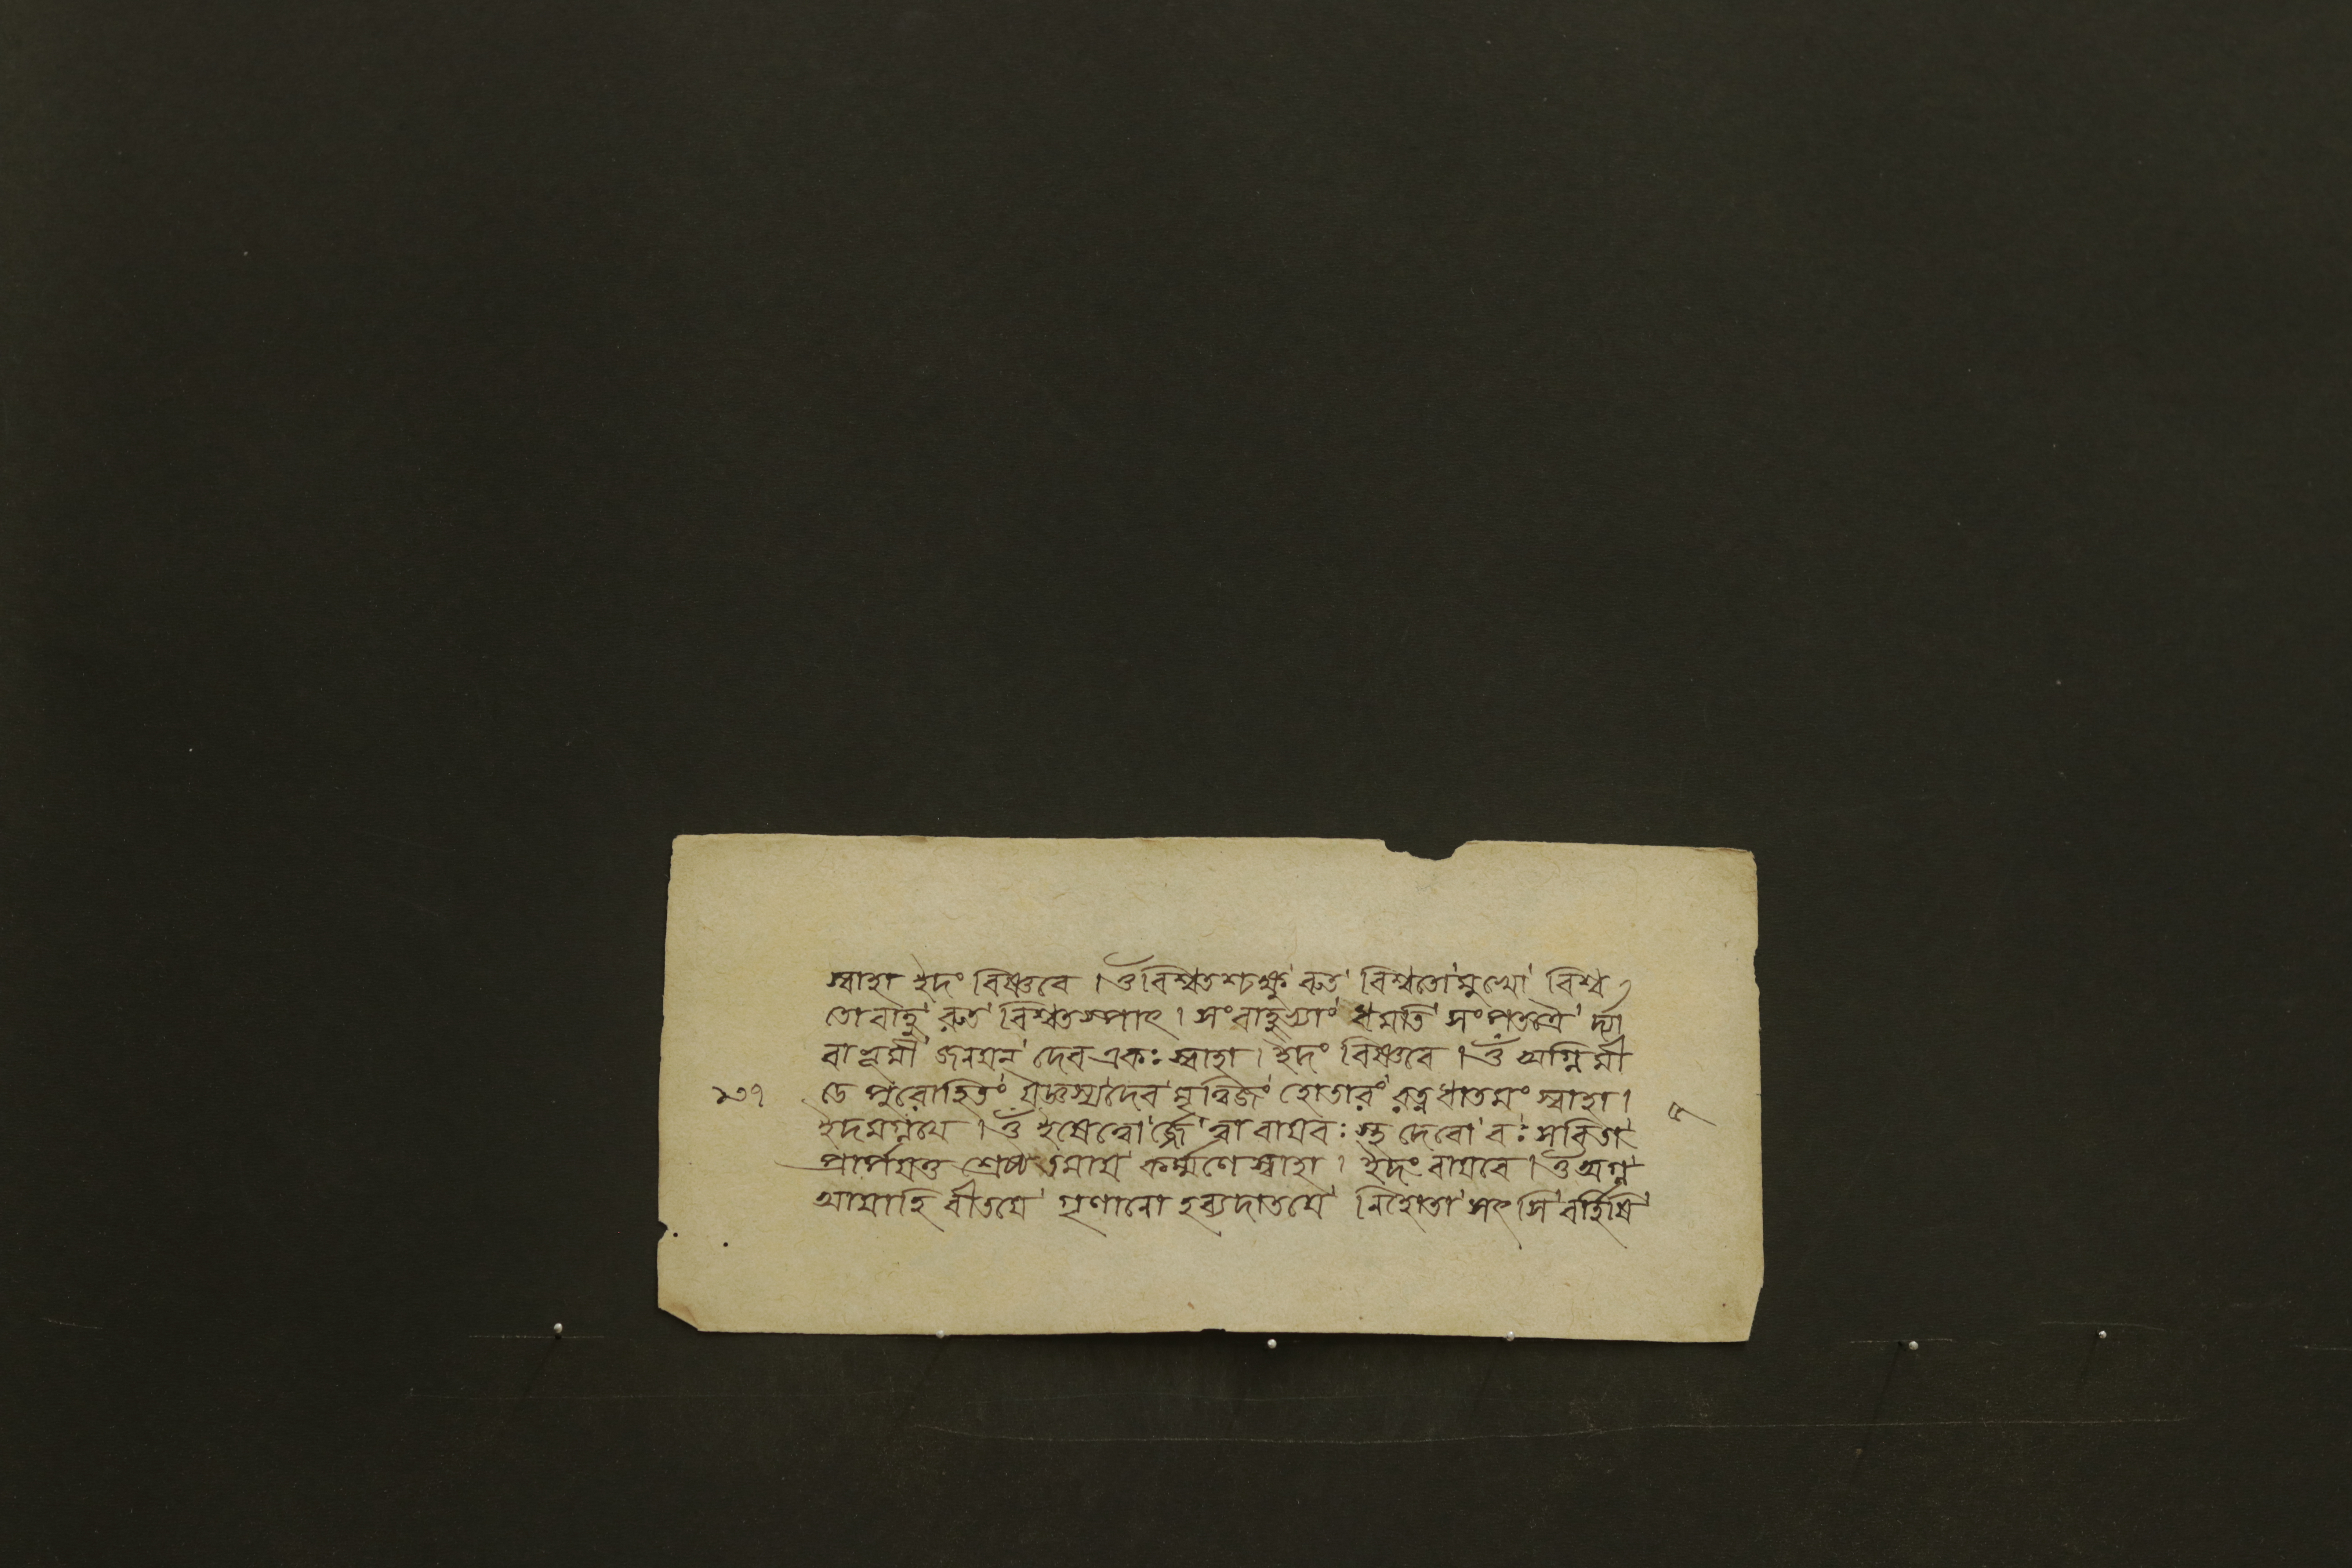 স্বাহা ইদং বিষ্ণবে । ওঁ বিশ্বতশ্চক্ষু রুত বিশ্বতো মুখো বিশ্ব
তো বাহু রুত বিশ্বতস্পাৎ । সং বাহুভ্যাং ধমতি সং পতত্রৈ র্দ্যা
বা ভূমী জনয়ন্ দেব একঃ স্বাহা । ইদং বিষ্ণবে । ওঁ অগ্নি মী
ডে পুরোহিতং যজ্ঞস্য দেব মৃত্বিজং হোতারং রত্নধাতমং স্বাহা ।
ইদমগ্নয়ে । ওঁ ইষে ত্বো র্জ্জে ত্বা বায়বঃ স্থ দেবো বঃ সবিতা
প্রার্পয়তু শ্রেষ্ঠতমায় কর্ম্মণে স্বাহা । ইদং বায়বে । ওঁ অগ্ন
আয়াহি বীতয়ে গৃণানো হব্যদাতয়ে নি হোতা সৎসি বর্হিষি